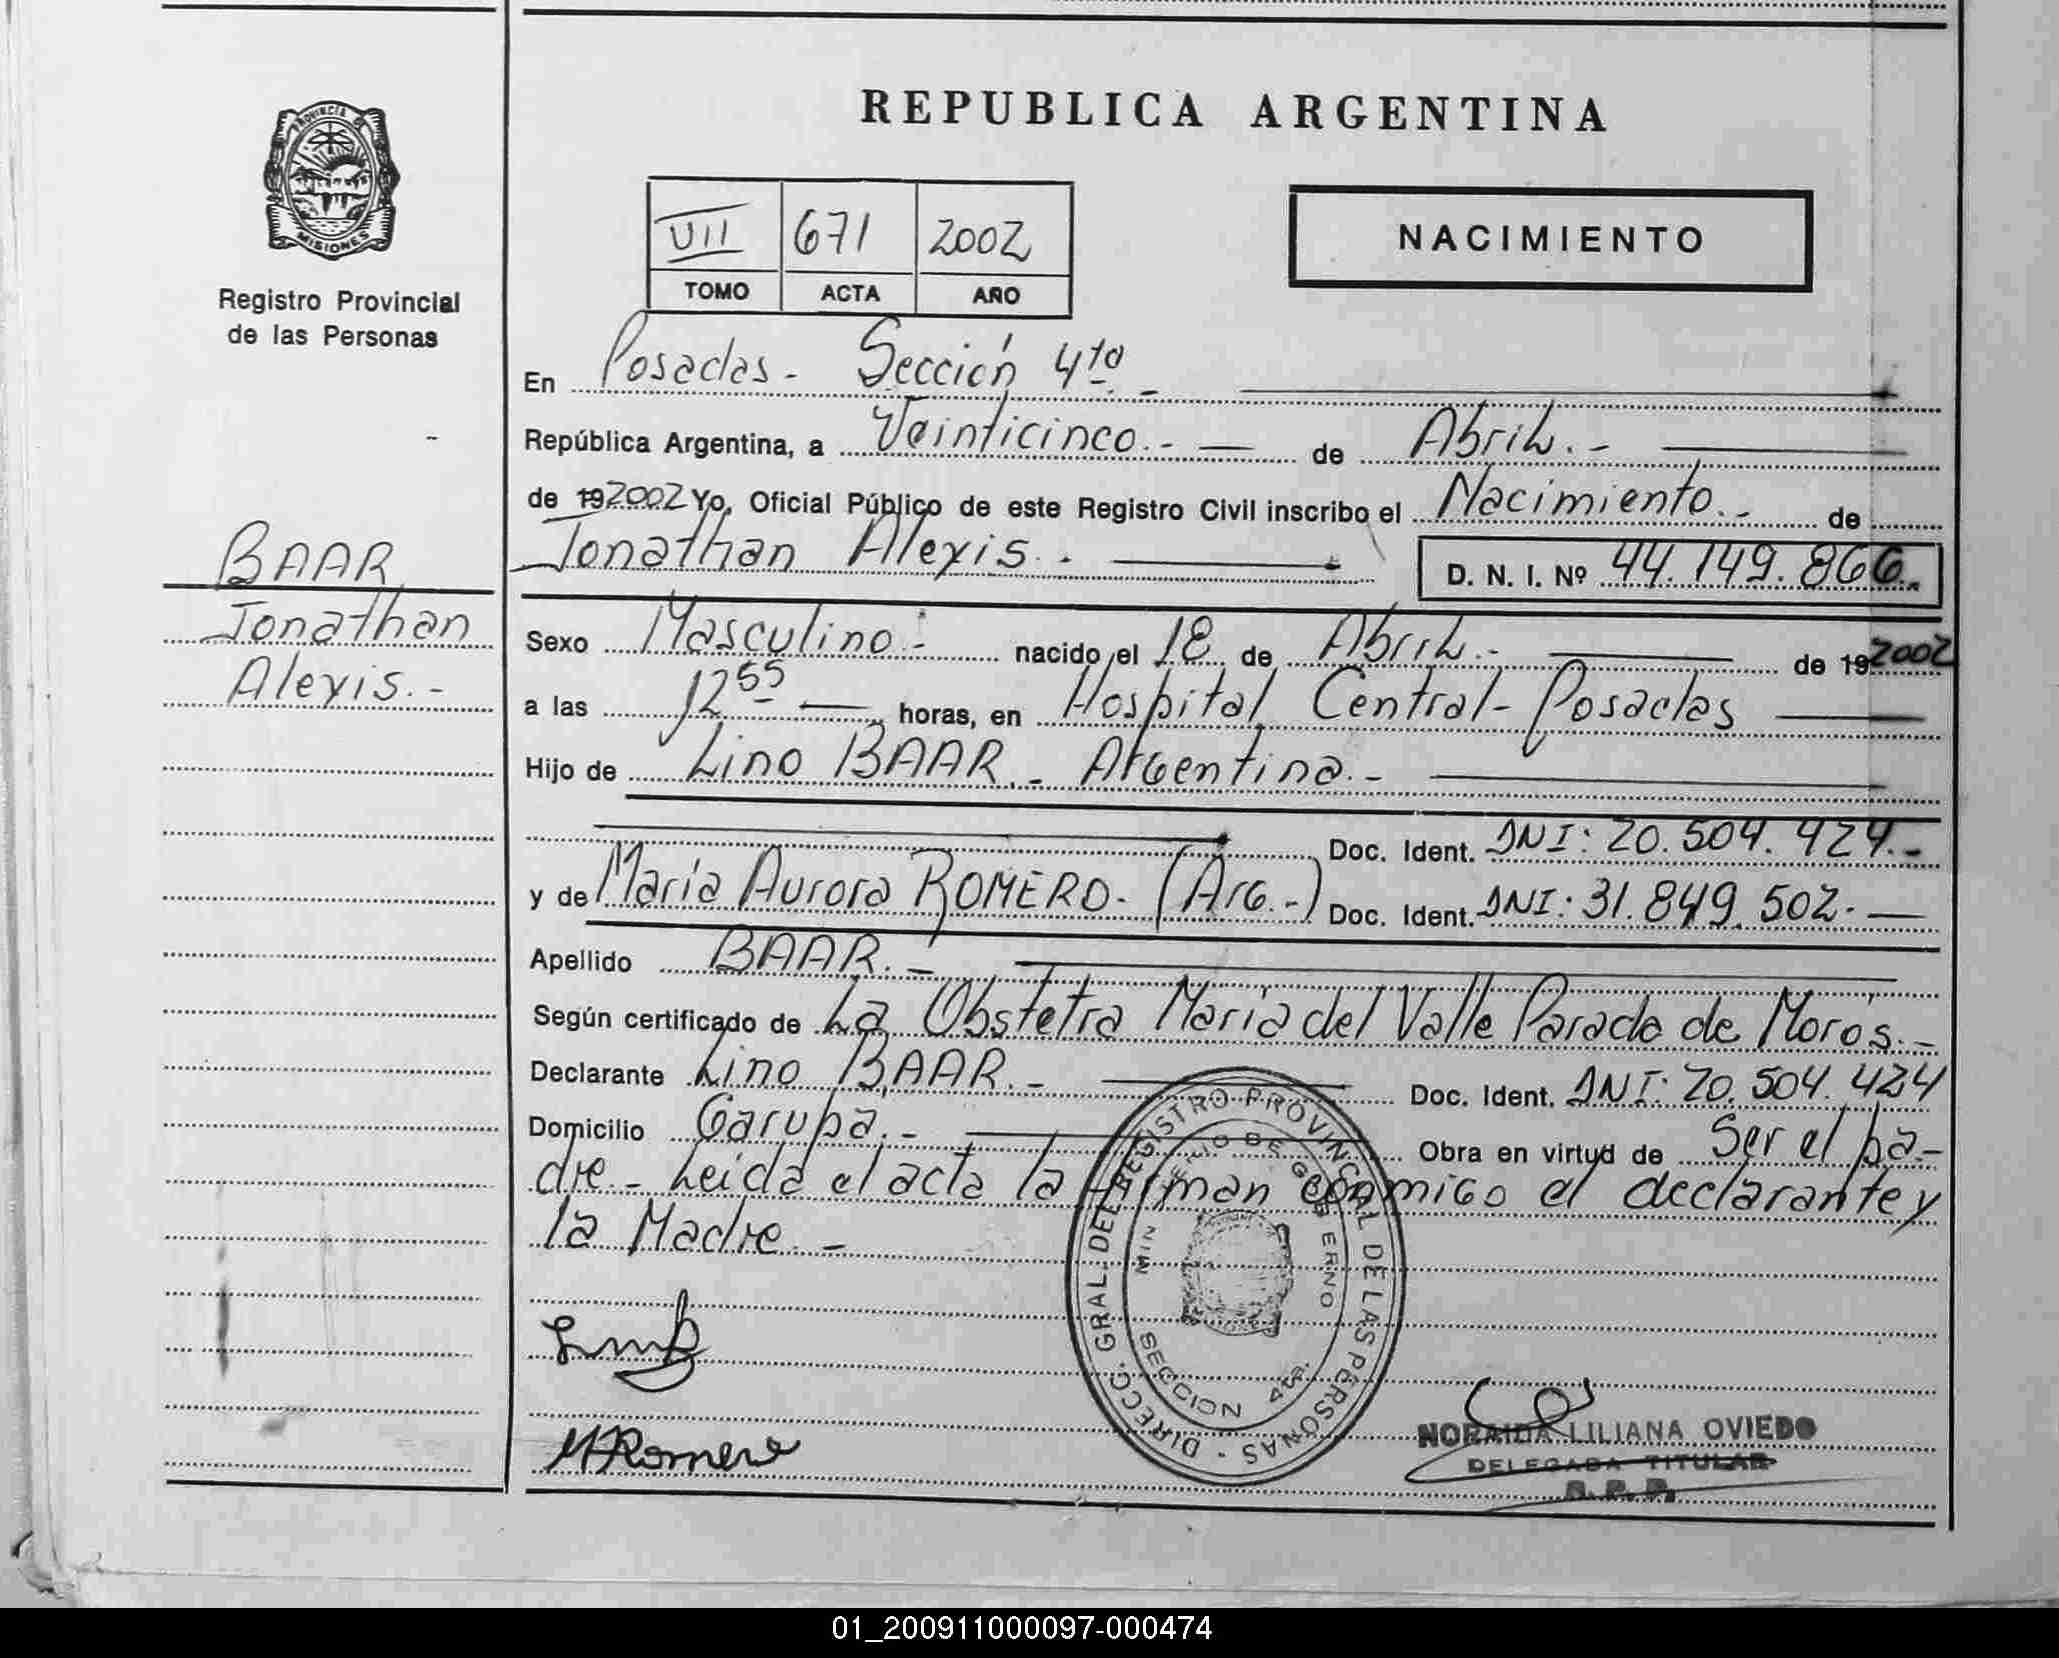 REPUBLICA ARGENTINA
PROVINCIA DE
MISIONES
Registro Provincial
de las Personas
VII 671 2002
TOMO ACTA AÑO
NACIMIENTO
En Posadas - Sección 4ta -
República Argentina, a Veinticinco.- de Abril.-
de 192002 Yo, Oficial Público de este Registro Civil inscribo el Nacimiento.- de
Jonathan Alexis.- D. N. I. Nº 44.149.866.
BAAR
Jonathan
Alexis.-
Sexo Masculino.- nacido el 18 de Abril.- de 192002
a las 12 55 horas, en Hospital Central - Posadas
Hijo de Lino BAAR - Argentina.-
Doc. Ident. DNI: 20.504.424.-
y de María Aurora ROMERO.- (Arg.-) Doc. Ident. DNI: 31.849.502.-
Apellido BAAR.-
Según certificado de La Obstetra Maria del Valle Parada de Moros.-
Declarante Lino BAAR.- Doc. Ident. DNI: 20.504.424
Domicilio Garupa.- Obra en virtud de Ser el pa-
dre - Leida el acta la firman conmigo el declarante y
la Madre.-
DIRECC. GRAL. DEL REGISTRO PROVINCIAL DE LAS PERSONAS
MINISTERIO DE GOBIERNO
SECCION 4ta.
M Romero
NORAIDA LILIANA OVIEDO
DELEGADA TITULAR
R. P. P.
01_200911000097-000474